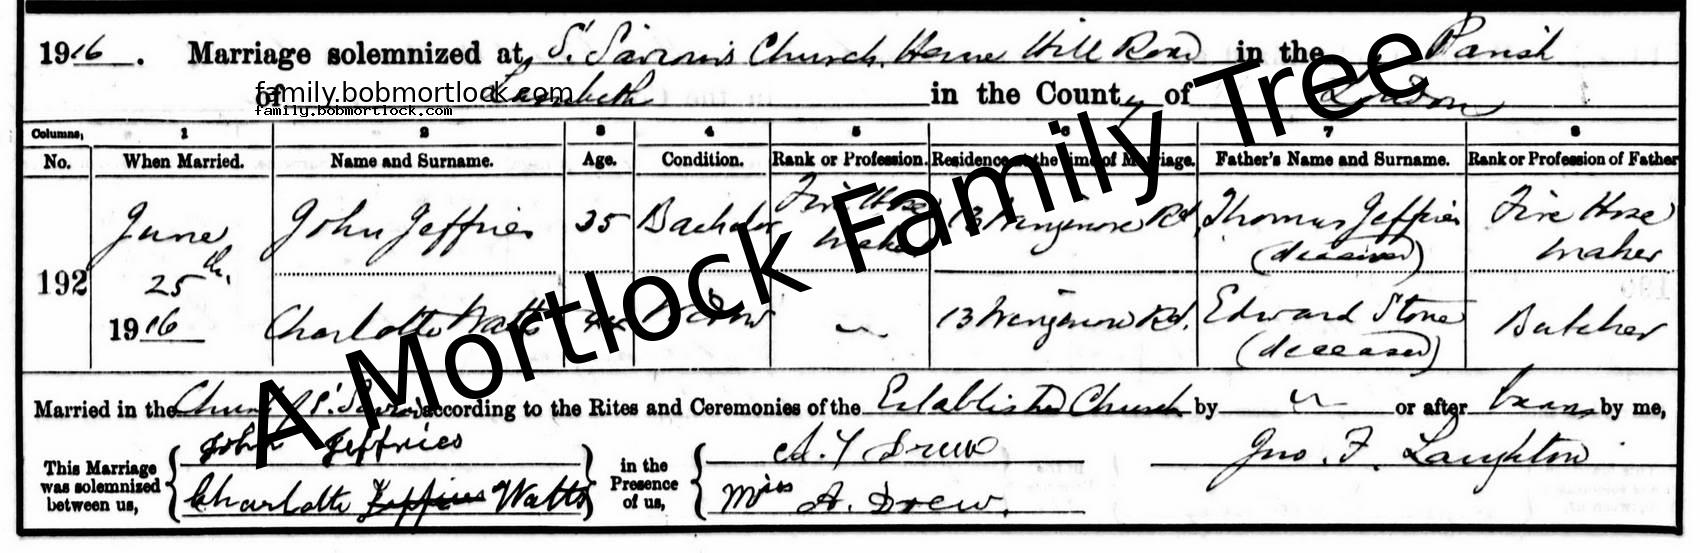 1916. Marriage solemnized at S. Saviour's Church, Herne Hill Road in the Parish
of Lambeth in the County of London
family.bobmortlock.com
family.bobmortlock.com
Columns, 1 2 3 4 5 6 7 8
No. When Married. Name and Surname. Age. Condition. Rank or Profession. Residence at the time of Marriage. Father's Name and Surname. Rank or Profession of Father
192 June 25th. 1916
John Jeffries 35 Bachelor Fire Hose Maker 13 Wingmore Rd. Thomas Jeffries (deceased) Fire Hose Maker
Charlotte Watts 44 Widow — 13 Wingmore Rd. Edward Stone (deceased) Butcher
Married in the Church S. according to the Rites and Ceremonies of the Established Church by — or after banns by me,
This Marriage was solemnized between us,
John Jeffries
Charlotte Jeffries Watts
in the Presence of us,
Drew
Miss A. Drew.
Jno. F. Laughton
A Mortlock Family Tree